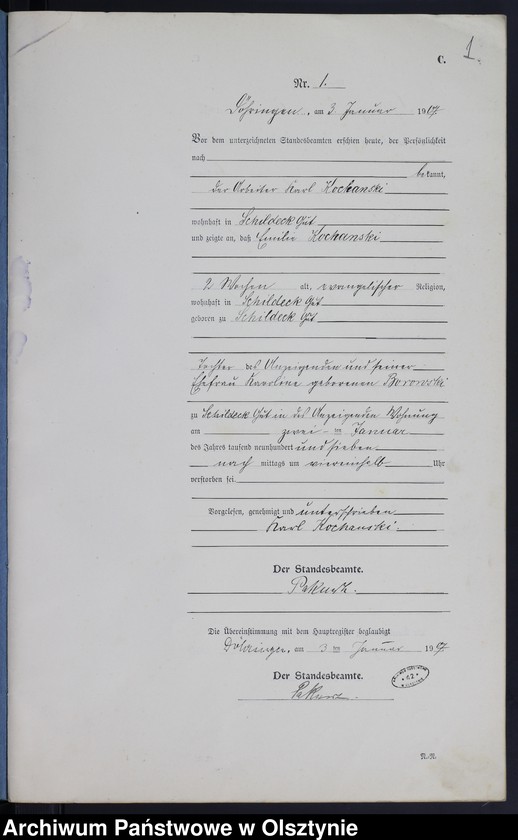 1
C.
Nr. 1.
Döhringen, am 3 Januar 1907
Vor dem unterzeichneten Standesbeamten erschien heute, der Persönlichkeit
nach
bekannt,
der Arbeiter Karl Kochanski
wohnhaft in Schildeck Gut
und zeigte an, daß Emilie Kochanski
2 Wochen alt, evangelischer Religion,
wohnhaft in Schildeck Gut
geboren zu Schildeck Gut
Tochter des Anzeigenden und seiner
Ehefrau Karoline geborenen Borowski
zu Schildeck Gut in des Anzeigenden Wohnung
am zwei ten Januar
des Jahres tausend neunhundert und sieben
nach mittags um viereinhalb Uhr
verstorben sei
Vorgelesen, genehmigt und unterschrieben
Karl Kochanski.
Der Standesbeamte.
Die Übereinstimmung mit dem Hauptregister beglaubigt
Döhringen, am 3 ten Januar 1907
Der Standesbeamte.
Archiwum Państwowe w Olsztynie